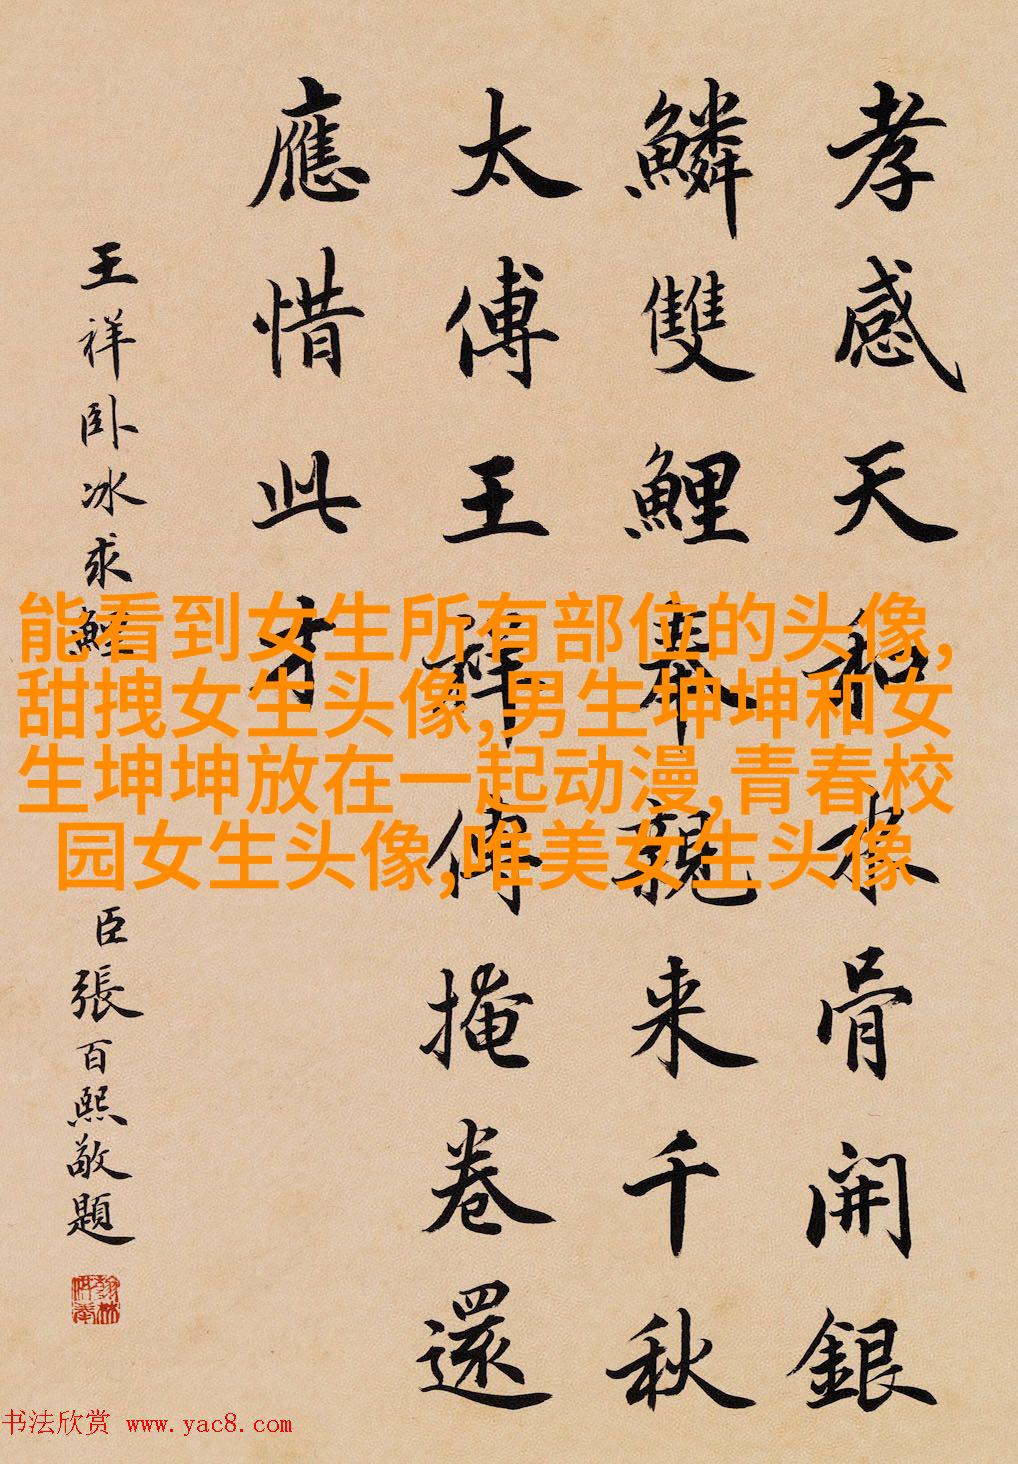 孝感天和冰骨開銀
鱗雙鯉奉親来千秋
太傅王祥傳掩卷還
應惜此才
王祥卧冰求鯉
臣張百熙敬題
能看到女生所有部位的头像,
甜拽女生头像,男生坤坤和女
生坤坤放在一起动漫,青春校
园女生头像,唯美女生头像
书法欣赏 www.yac8.com